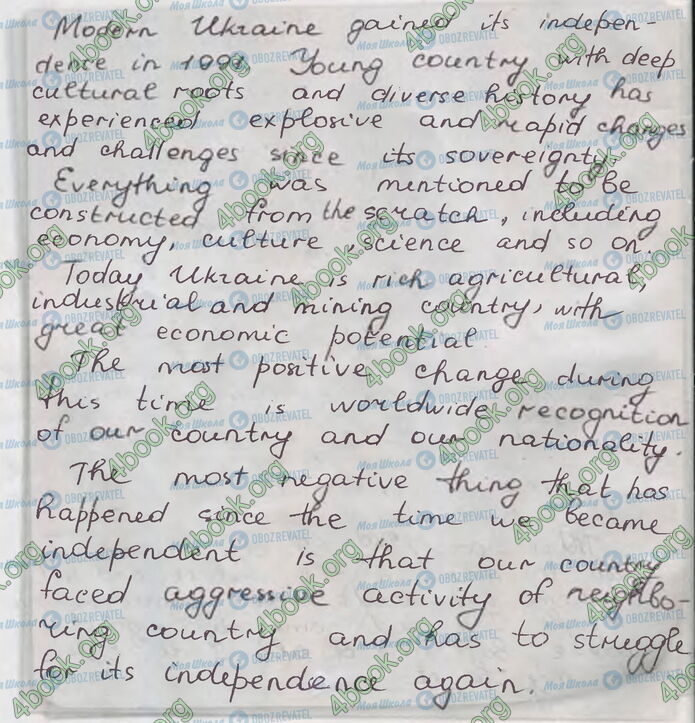 Modern Ukraine gained its indepen-
dence in 1991. Young country with deep
cultural roots and diverse history has
experienced explosive and rapid changes
and challenges since its sovereignty.
Everything was mentioned to be
constructed from the scratch, including
economy, culture, science and so on.
Today Ukraine is rich agricultural,
industrial and mining country, with
great economic potential.
The most positive change during
this time is worldwide recognition
of our country and our nationality.
The most negative thing that has
happened since the time we became
independent is that our country
faced aggressive activity of neighbo-
ring country and has to struggle
for its independence again.